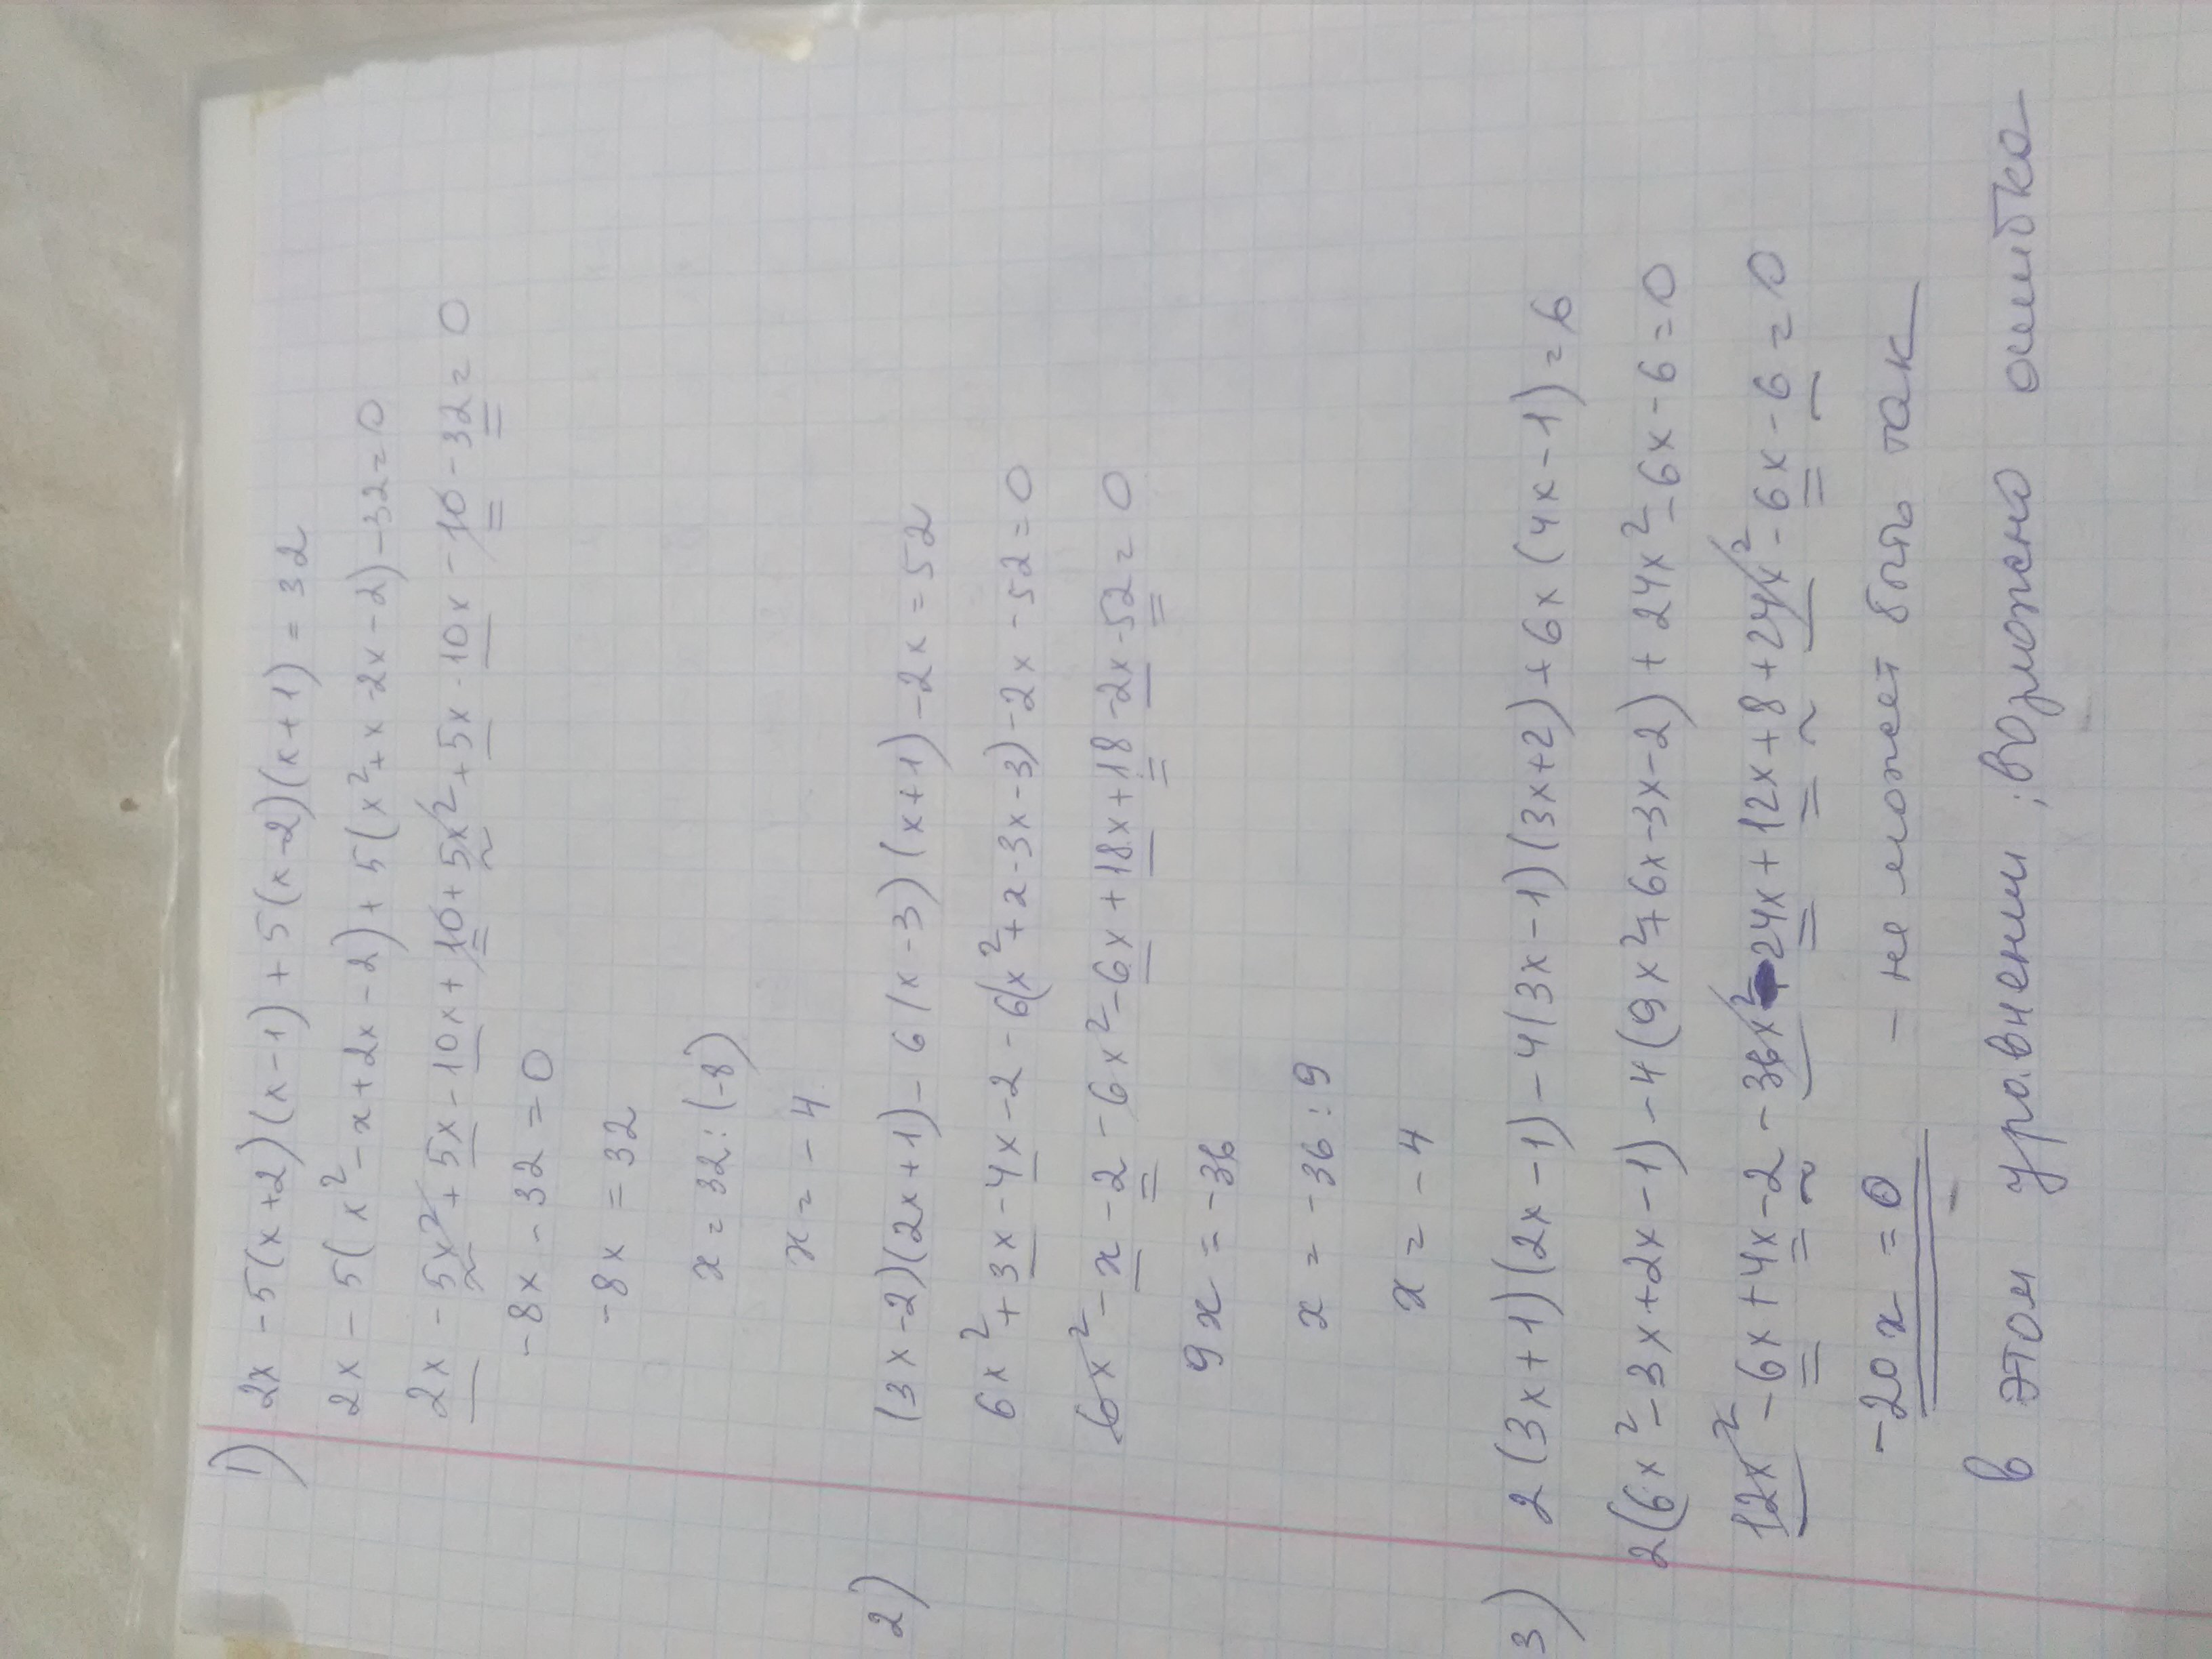 1) 2x - 5(x+2)(x-1) + 5(x-2)(x+1) = 32
2x - 5(x² - x + 2x - 2) + 5(x² + x - 2x - 2) - 32 = 0
2x - 5x² + 5x - 10x + 10 + 5x² + 5x - 10x - 10 - 32 = 0
-8x - 32 = 0
-8x = 32
x = 32 : (-8)
x = -4
2) (3x-2)(2x+1) - 6(x-3)(x+1) - 2x = 52
6x² + 3x - 4x - 2 - 6(x² + x - 3x - 3) - 2x - 52 = 0
6x² - x - 2 - 6x² - 6x + 18x + 18 - 2x - 52 = 0
9x = -36
x = -36 : 9
x = -4
3) 2(3x+1)(2x-1) - 4(3x-1)(3x+2) + 6x(4x-1) = 6
2(6x² - 3x + 2x - 1) - 4(9x² + 6x - 3x - 2) + 24x² - 6x - 6 = 0
12x² - 6x + 4x - 2 - 36x² - 24x + 12x + 8 + 24x² - 6x - 6 = 0
-20x = 0 - не может быть так
в этом уравнении, возможно ошибка